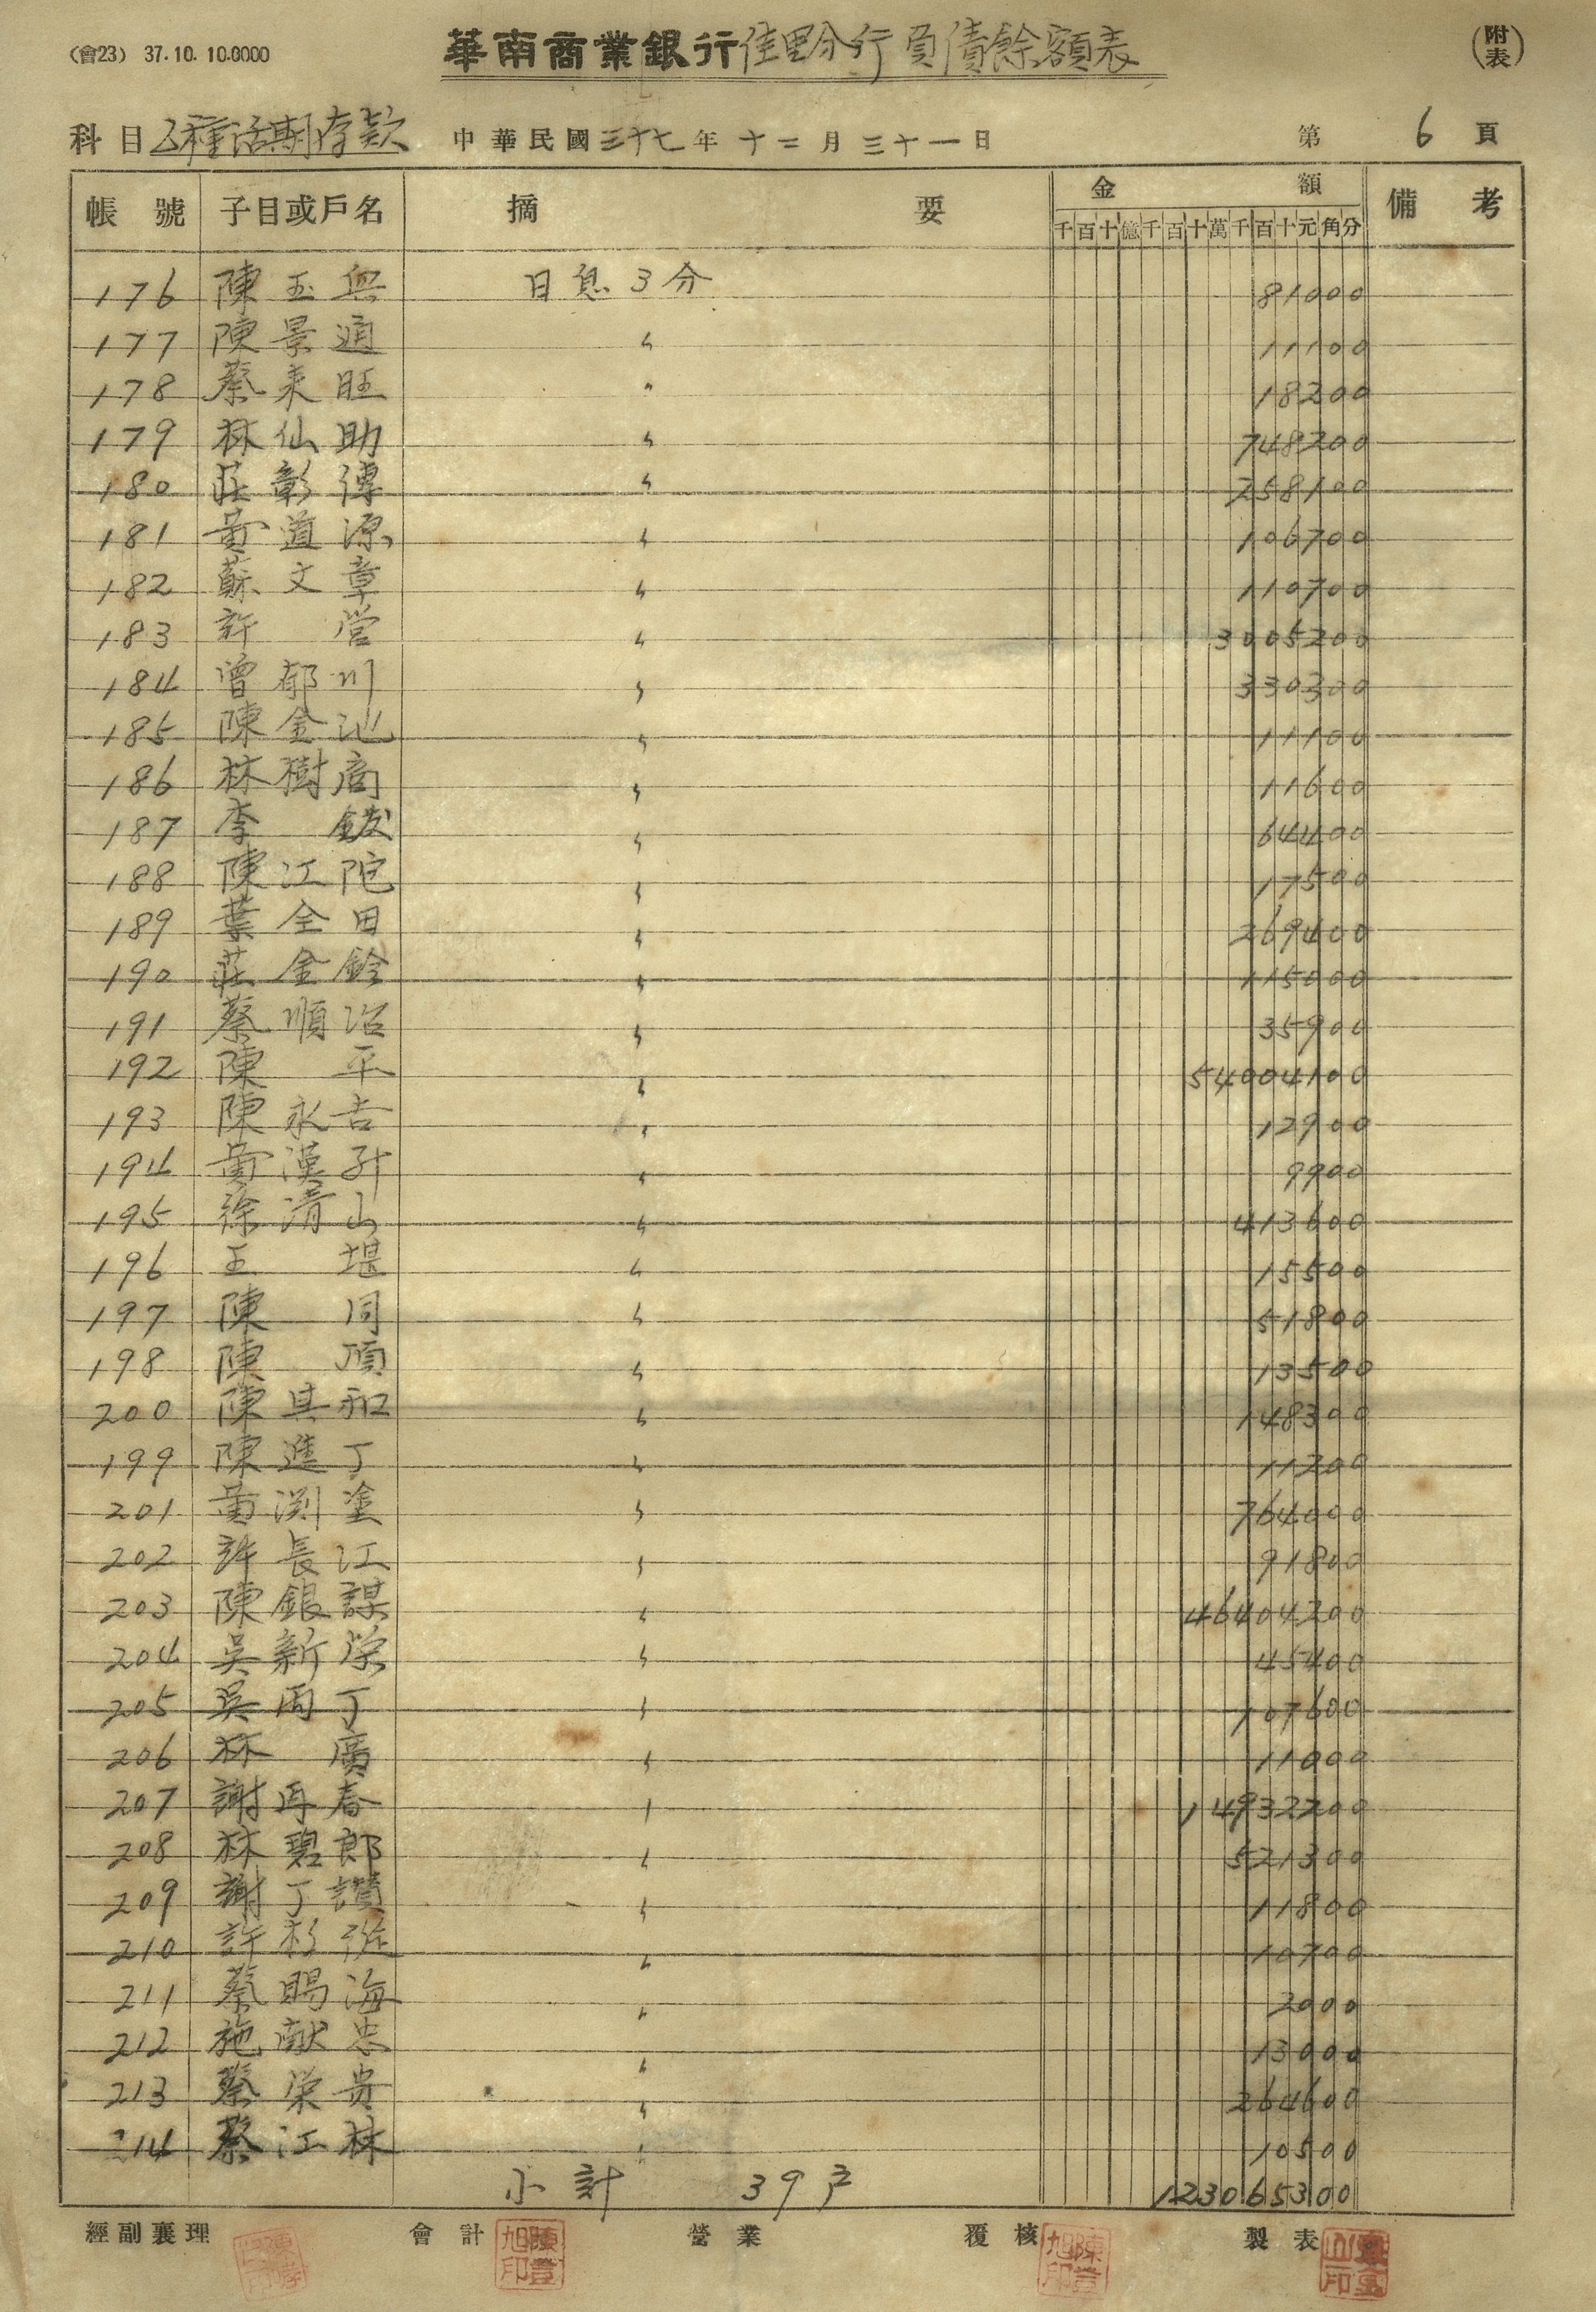 (會23) 37.10.10.0000
華南商業銀行佳里分行負債餘額表
(附表)
科目 乙種活期存款 中華民國三十七年十二月三十一日 第6頁
帳號 子目或戶名 摘要 金額 備考
千百十億千百十萬千百十元角分
176 陳玉興 日息3分 81000
177 陳景通 〃 11100
178 蔡来旺 〃 18200
179 林仙助 〃 748200
180 莊彰傳 〃 258100
181 黃道源 〃 106700
182 蘇文章 〃 110700
183 許營 〃 3005200
184 曾郁川 〃 330300
185 陳金池 〃 11100
186 林樹商 〃 11600
187 李 〃 64400
188 陳江陀 〃 17500
189 葉全田 〃 269400
190 莊金鈴 〃 115000
191 蔡順治 〃 35900
192 陳平 〃 54004100
193 陳永吉 〃 12900
194 黃漢 〃 9900
195 徐清山 〃 413600
196 王堪 〃 15500
197 陳同 〃 51800
198 陳頂 〃 13500
200 陳其和 〃 148300
199 陳進丁 〃 11200
201 黃渕塗 〃 764000
202 許長江 〃 91800
203 陳銀謀 〃 46404200
204 吳新榮 〃 45400
205 吳丙丁 〃 107600
206 林廣 〃 11000
207 謝再春 〃 14932200
208 林碧郎 〃 521300
209 謝丁讚 〃 11800
210 許杉 〃 10700
211 蔡賜海 〃 2000
212 施献忠 〃 13000
213 蔡榮貴 〃 264600
214 蔡江林 〃 10500
小計 39戶 123065300
經副襄理 會計 營業 覆核 製表
陳登旭印 陳登旭印